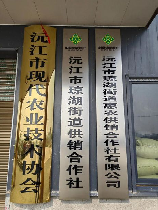 沅江市现代农业技术协会
沅江市琼湖街道供销合作社
沅江市琼湖街道惠农供销合作社有限公司